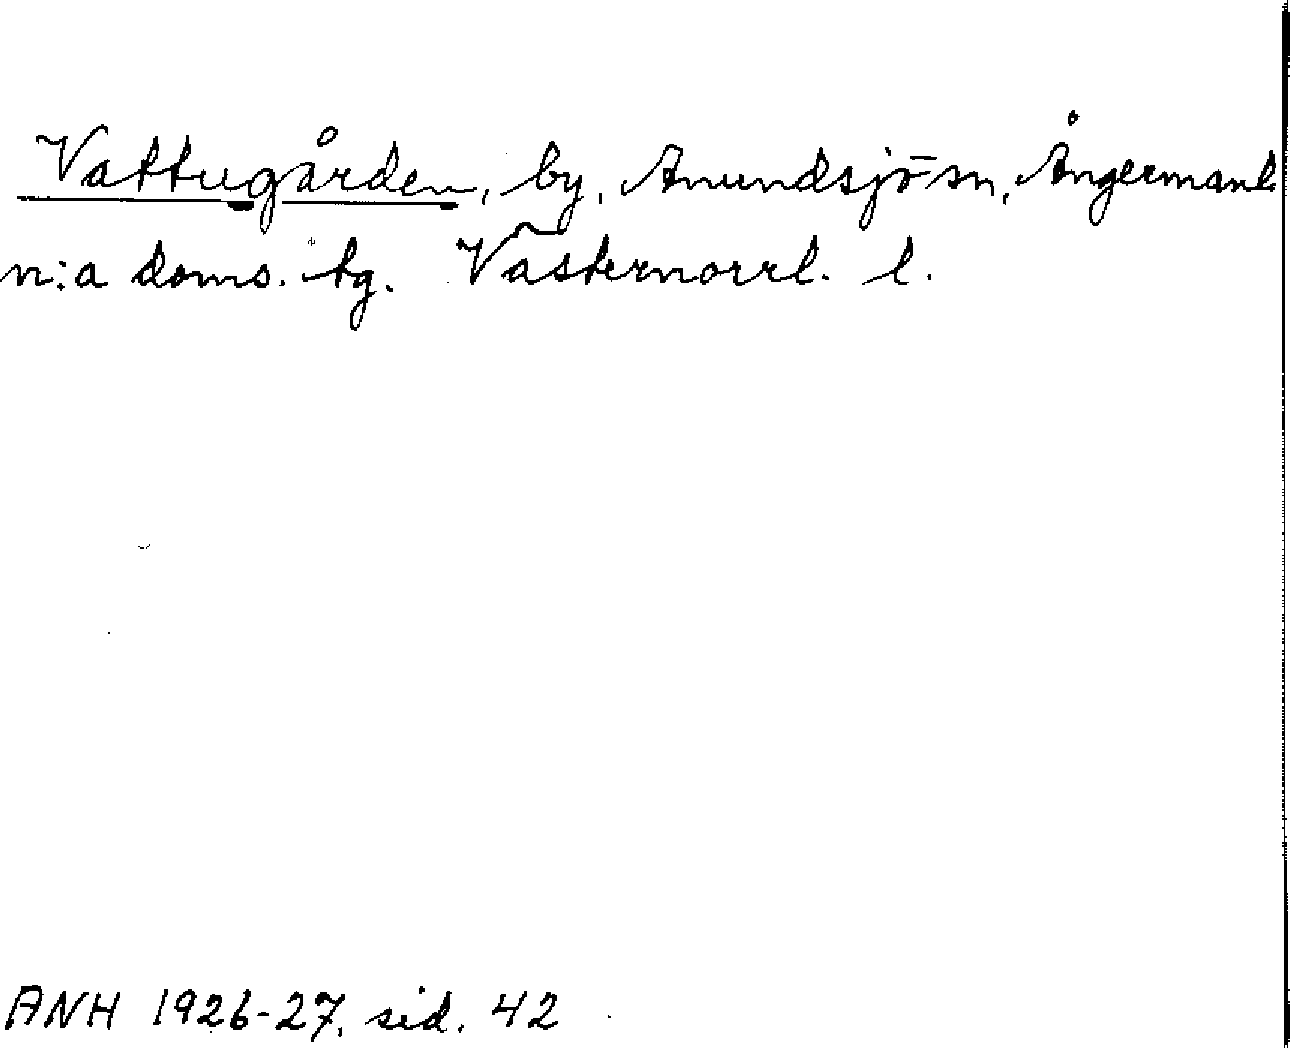 Vattugården, by, Anundsjö sn, Ångermanl.
n:a doms. tg. Västernorrl. l.
ANH 1926-27, sid. 42